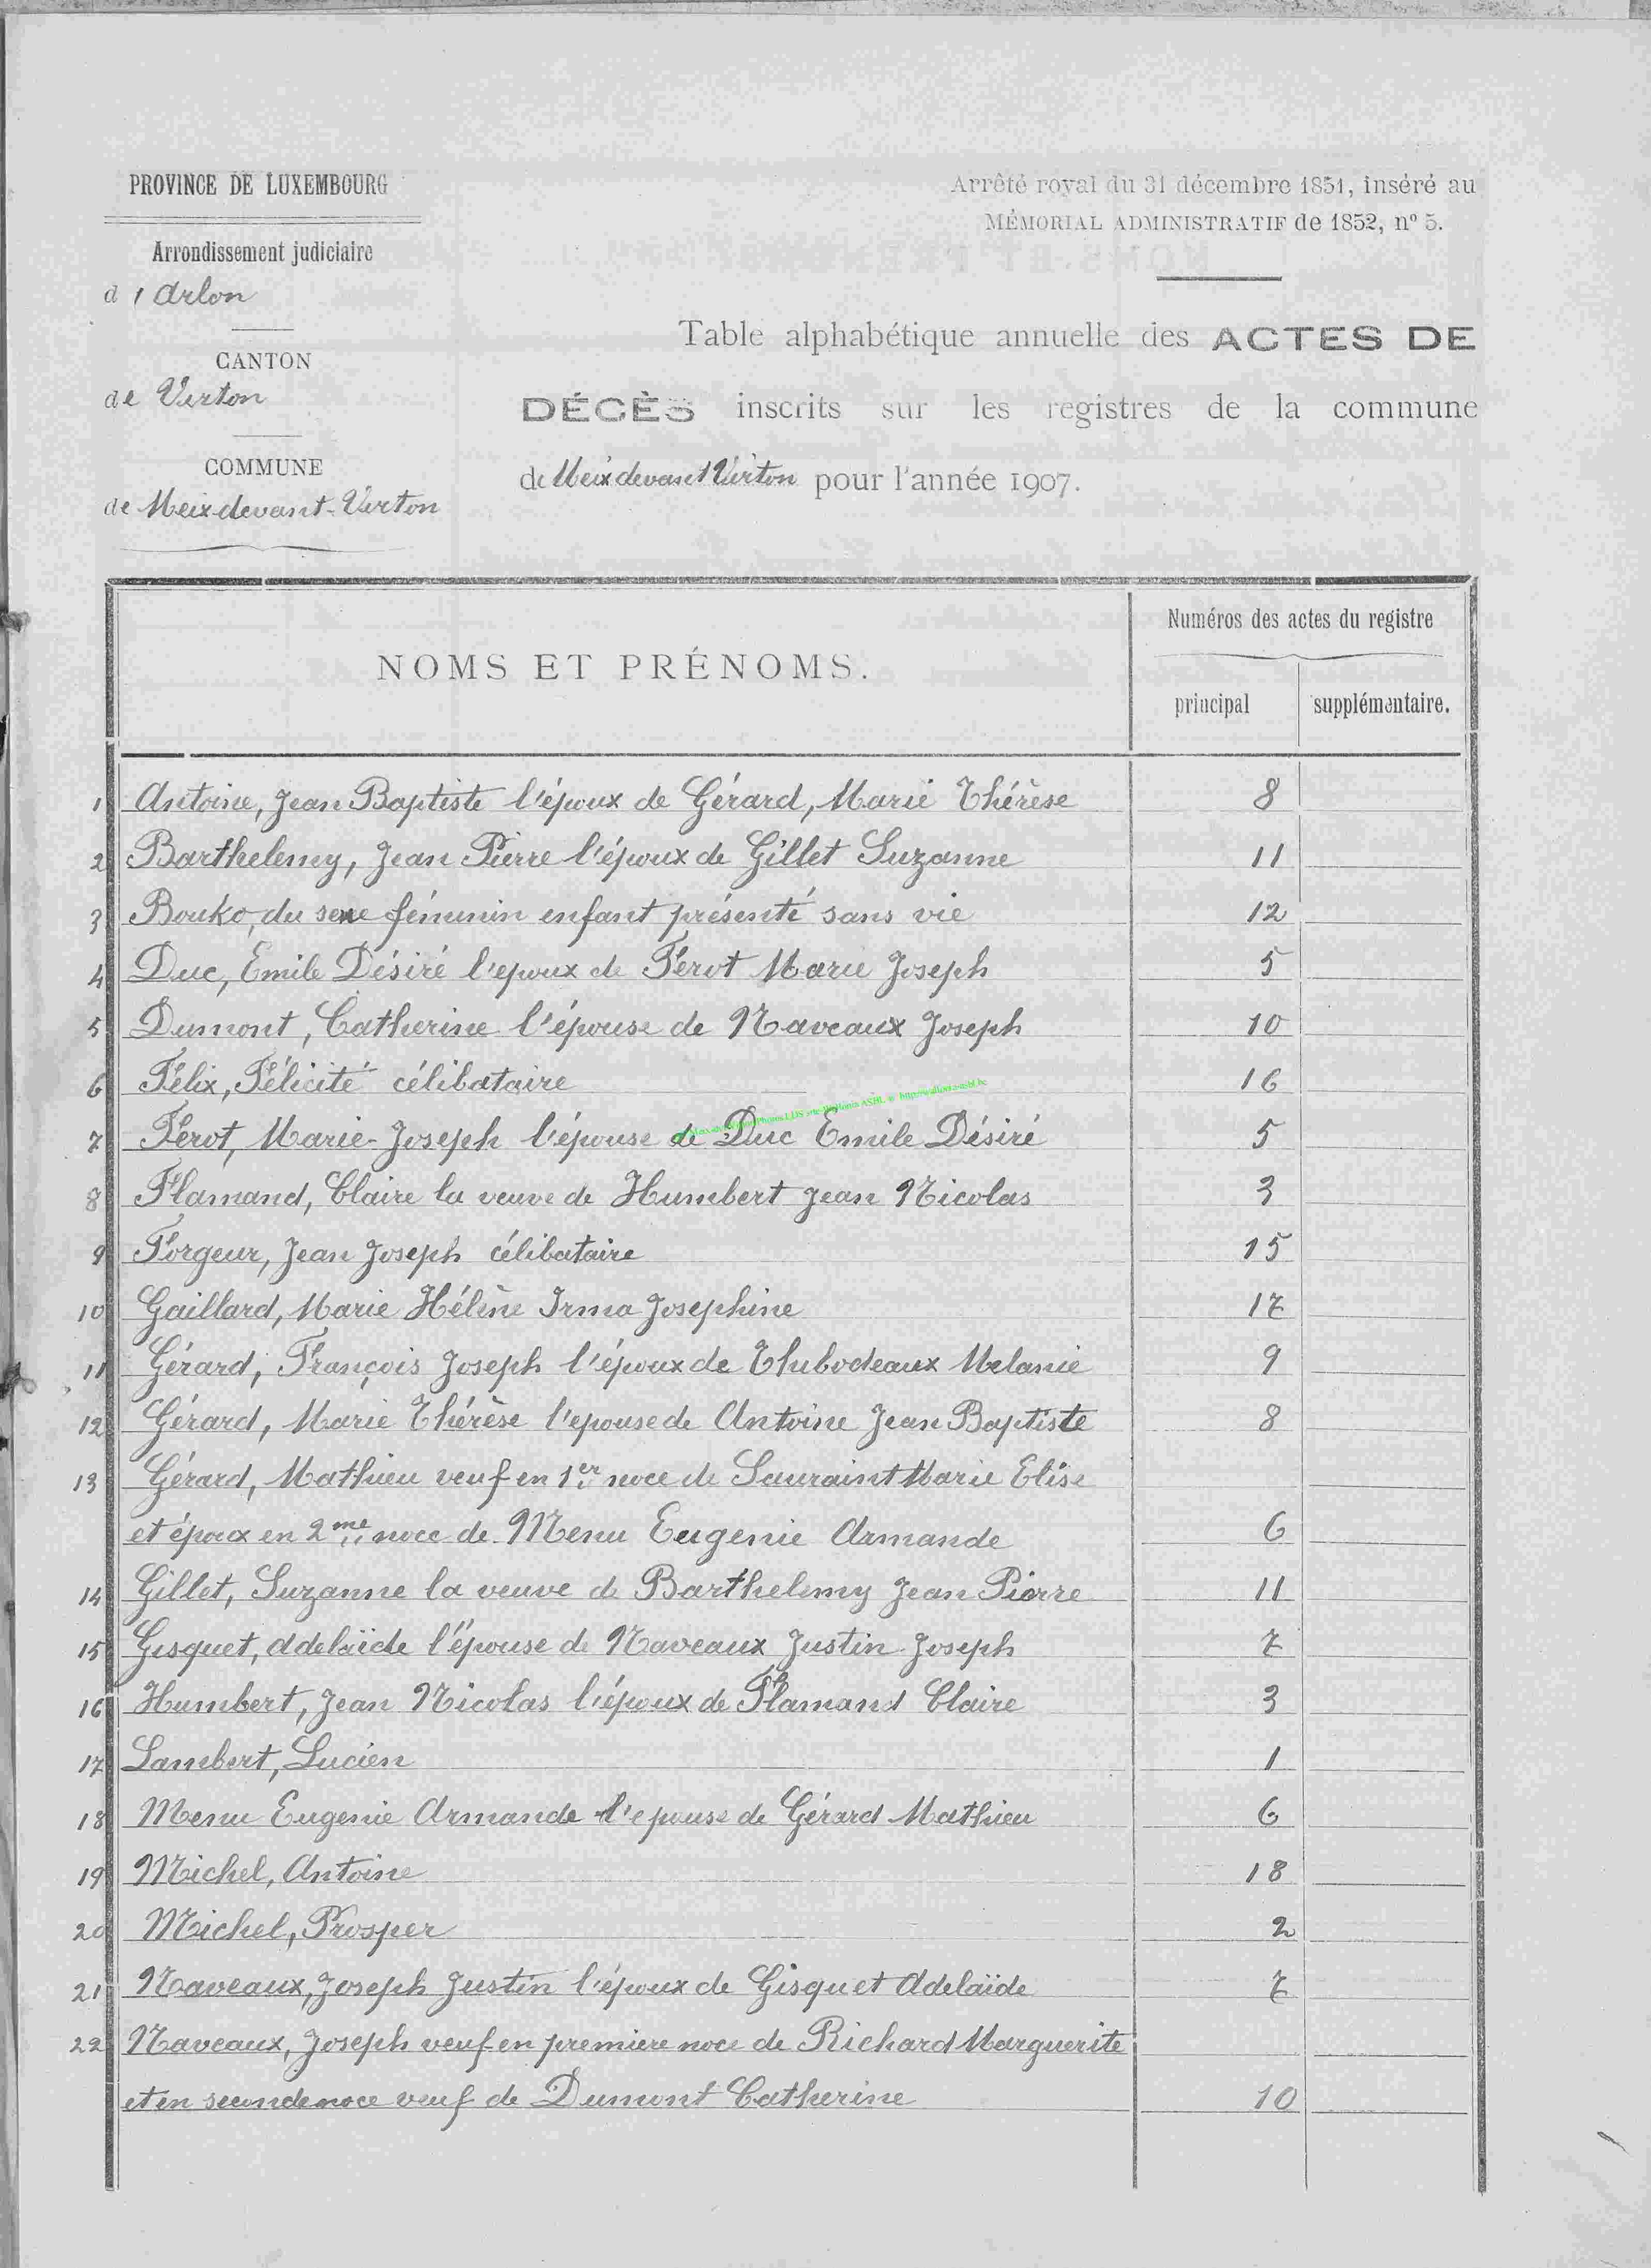 PROVINCE DE LUXEMBOURG
Arrondissement judiciaire
d'Arlon
CANTON
de Virton
COMMUNE
de Meix-devant-Virton
Arrêté royal du 31 décembre 1851, inséré au
MÉMORIAL ADMINISTRATIF de 1852, nº 5.
Table alphabétique annuelle des ACTES DE
DÉCÈS inscrits sur les registres de la commune
de Meix devant Virton pour l'année 1907.
NOMS ET PRÉNOMS.
Numéros des actes du registre
principal
supplémentaire.
1 Antoine, Jean Baptiste l'époux de Gérard, Marie Thérèse 8
2 Barthelemy, Jean Pierre l'époux de Gillet Suzanne 11
3 Bouko, du sexe féminin enfant présenté sans vie 12
4 Duc, Emile Désiré l'epoux de Férot Marie Joseph 5
5 Dumont, Catherine l'épouse de Naveaux Joseph 10
6 Félix, Félicité célibataire 16
7 Férot, Marie-Joseph l'épouse de Duc Emile Désiré 5
8 Flamand, Claire la veuve de Humbert Jean Nicolas 3
9 Forgeur, Jean Joseph célibataire 15
10 Gaillard, Marie Hélène Irma Josephine 17
11 Gérard, François Joseph l'époux de Thubodeaux Melanie 9
12 Gérard, Marie Thérèse l'epouse de Antoine Jean Baptiste 8
13 Gérard, Mathieu veuf en 1er noce de Sauraint Marie Elise
et époux en 2me noce de Menu Eugenie Armande 6
14 Gillet, Suzanne la veuve de Barthelemy Jean Pierre 11
15 Gisquet, Adelaïde l'épouse de Naveaux Justin Joseph 7
16 Humbert, Jean Nicolas l'époux de Flamand Claire 3
17 Lambert, Lucien 1
18 Menu Eugenie Armande l'epouse de Gérard Mathieu 6
19 Michel, Antoine 18
20 Michel, Prosper 2
21 Naveaux, Joseph Justin l'époux de Gisquet Adelaïde 7
22 Naveaux, Joseph veuf en premiere noce de Richard Marguerite
et en seconde noce veuf de Dumont Catherine 10